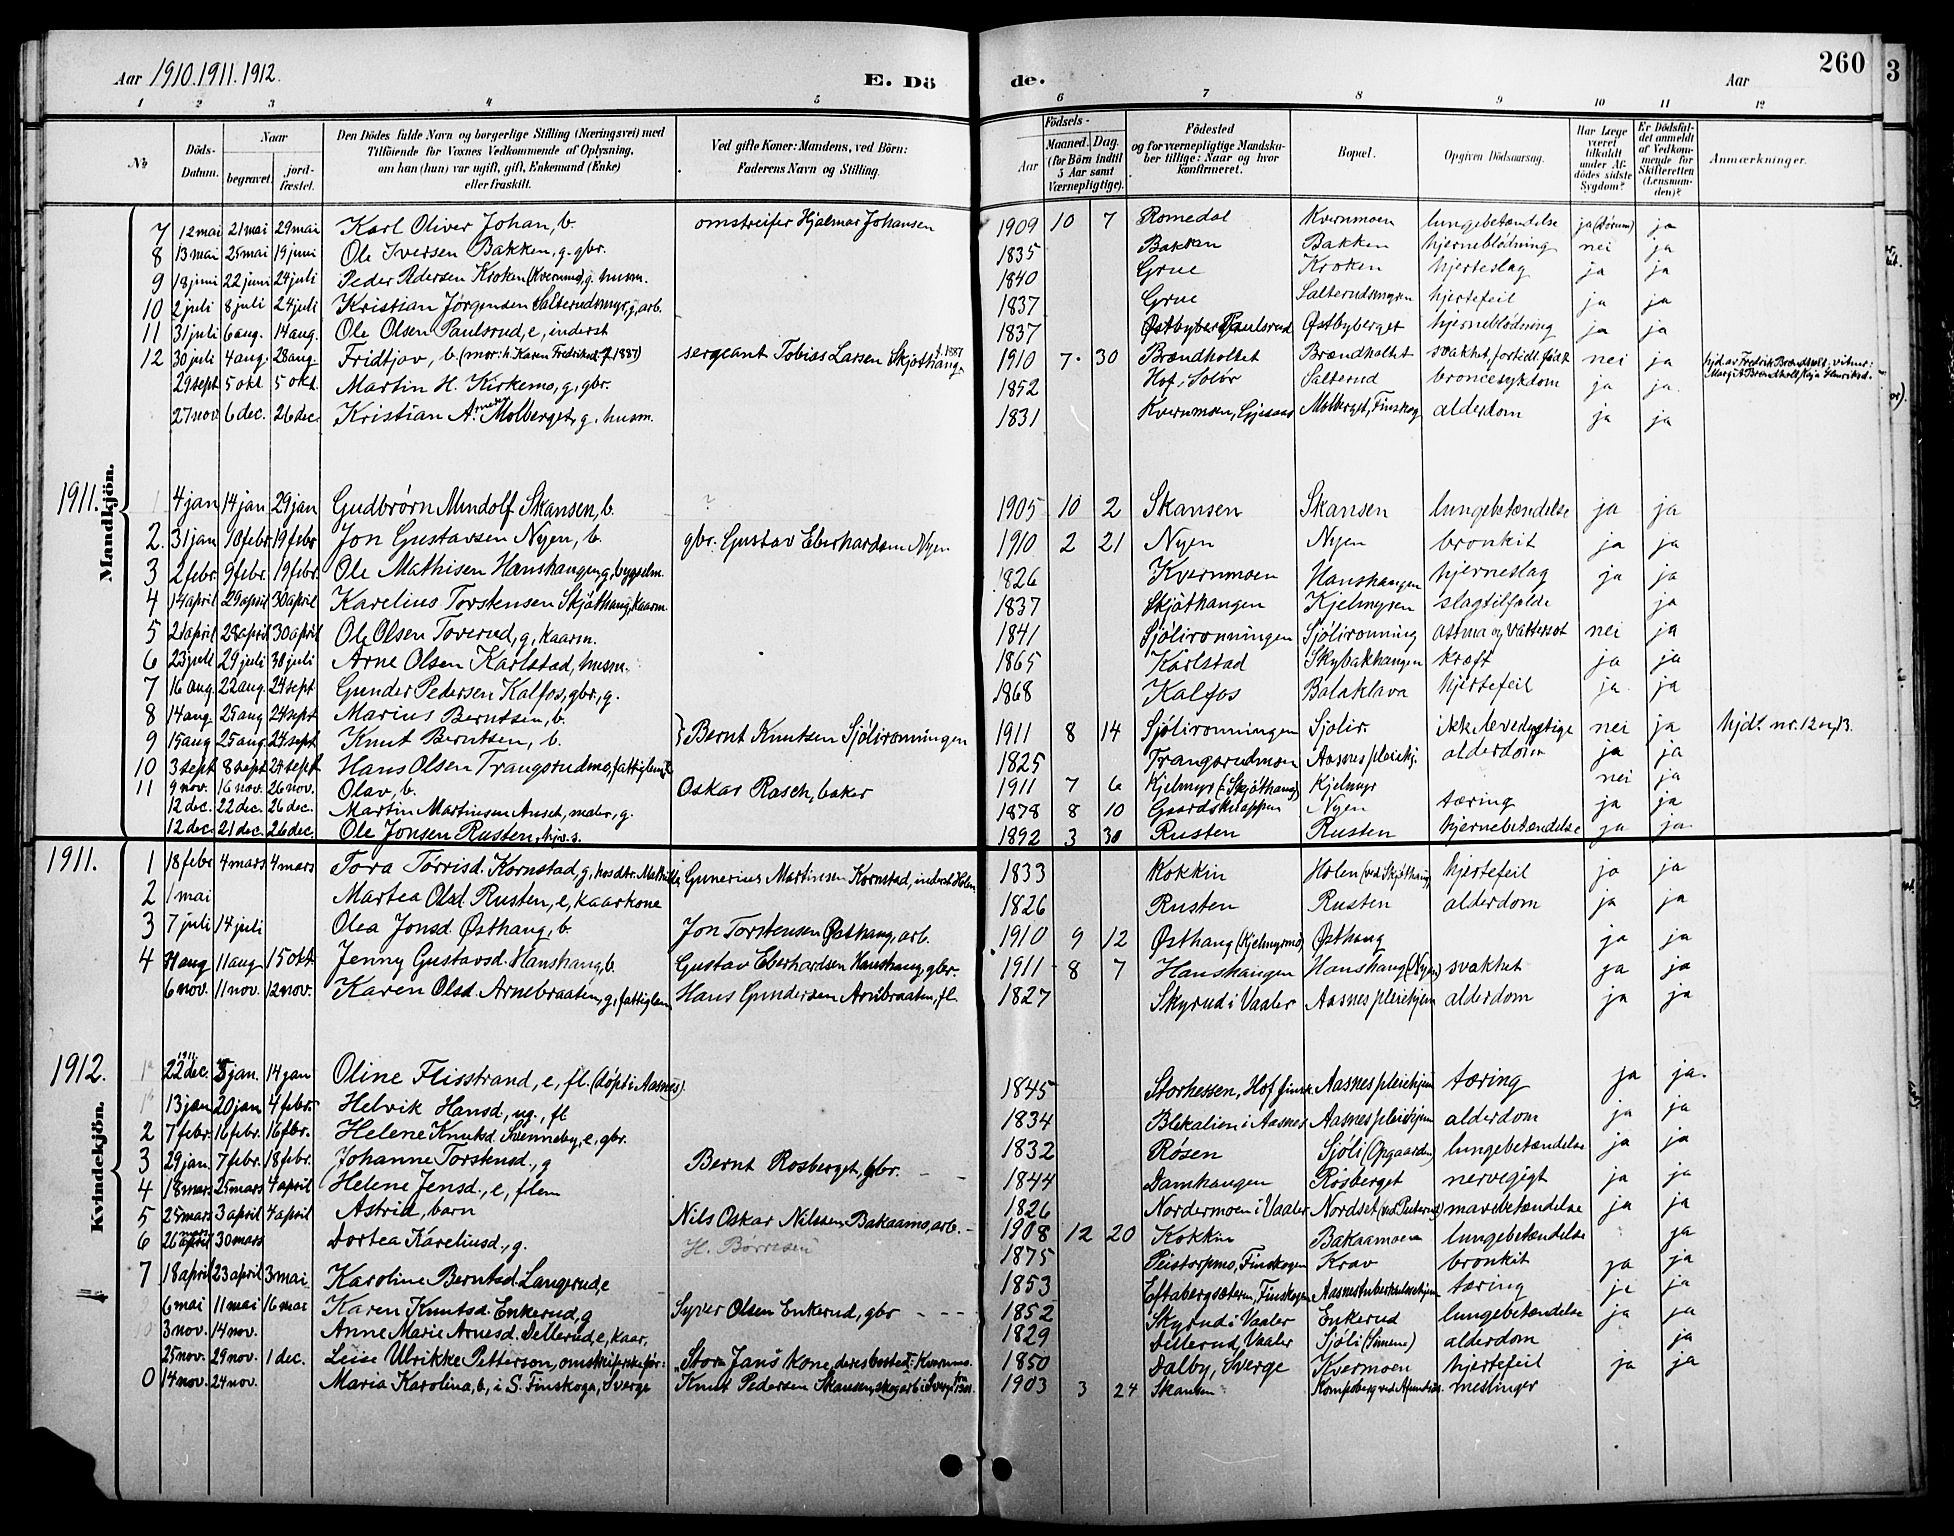 Aar 1910.1911.1912. E. Dö de. Aar 260
3
1 2 3 4 5 6 7 8 9 10 11 12
No Döds-Datum. Naar begravet. jord-fæstet. Den Dödes fulde Navn og borgerlige Stilling (Næringsvei) med Tilföiende for Voxnes Vedkommende af Oplysning, om han (hun) var ugift, gift, Enkemand (Enke) eller fraskilt. Ved gifte Koner: Mandens, ved Börn: Faderens Navn og Stilling. Födsels- Aar Maaned. Dag. (for Börn indtil 5 Aar samt Værnepligtige). Födested og for værnepligtige Mandskaber tillige: Naar og hvor konfirmeret. Bopæl. Opgiven Dödsaarsag. Har Læge været tilkaldt under Afdödes sidste Sygdom? Er Dödsfaldet anmeldt af Vedkommende for Skifteretten (Lensmanden)? Anmærkninger.
Mandkjön.
7 12 mai 21 mai 29 mai Karl Oliver Johan, b. omstreifer Hjalmar Johansen 1909 10 7 Romedal Kvernmoen lungebetændelse ja ja
8 13 mai 25 mai 19 juni Ole Iversen Bakken, g. gbr. 1835 Bakken Bakken hjerneblödning nei ja
9 18 juni 22 juni 24 juli Peder Pedersen Kroken (Kvernmo), g. husm. 1840 Grue Kroken hjerteslag ja ja
10 2 juli 8 juli 24 juli Kristian Jörgensen Salterudsmyr, g, arb. 1837 Grue Salterudsmyren hjertefeil ja ja
11 31 juli 6 aug. 14 aug. Ole Olsen Paulsrud, e, inderst 1837 Østbyberget Paulsrud Østbyberget hjerneblödning ja ja
12 30 juli 4 aug. 28 aug. Fridtjov, b. (mor: h. Karen Fredriksd. f. 1887) sergeant Tobias Larsen Skjöthang f. 1887 1910 7 30 Brændholtet Brændholtet svakhet, fortidl. födt nei ja
29 sept 5 okt 5 okt. Martin H. Kirkemo, g, gbr. 1852 Hof i Solör Salterud broncesykdom ja ja
27 nov 6 dec. 26 dec. Kristian Molberget, g. husm. 1831 Kvernmoen, Molberget, Finskog alderdom ja ja
1911.
1 4 jan 14 jan 29 jan Gudbrørn Mindolf Skansen, b. ? 1905 10 2 Skansen Skansen lungebetændelse ja ja
2. 31 jan 9 febr 19 febr Jon Gustavsen Nyen, b. gbr. Gustav Eberhardsen Nyen 1910 2 21 Nyen Nyen bronkit ja ja
3 2 febr 9 febr. 19 febr. Ole Mathisen Hanshangen, g, bygselm. 1826 Kvernmoen Hanshangen hjerneslag ja ja
4 14 april 29 april 30 april Karelius Torstensen Skjöthang, kaarm. 1837 Skjöthangen Kjelmyren slagtilfælde ja
5 21 april 28 april 30 april Ole Olsen Toverud, g, kaarm. 1841 Sjölirönningen Sjölirönning astma og vattersot nei ja
6 23 juli 29 juli 30 juli Arne Olsen Karlstad, husm. 1865 Karlstad Skybakhangen kræft ja ja
7 16 aug 22 aug. 24 sept Gunder Pedersen Kalfos, gbr, g. 1868 Kalfos Balaklava hjertefeil ja ja
8 14 aug. 25 aug 24 sept Marius Berntsen, b. } Bernt Knutsen Sjölirönningen 1911 8 14 Sjölirönningen Sjölir. ikke levedygtige nei ja hjdt. nr. 12 og 13.
9 15 aug 25 aug 24 sept Knut Berntsen, b.
10 3 sept 8 sept 24 sept Hans Olsen Trangsrudmo, fattiglem 1825 Trangsrudmoen Aasnes pleiehj. alderdom ja ja
11 9 nov. 16 nov. 26 nov. Olav, b. Oskar Rasch, baker 1911 7 6 Kjelmyr (Skjöthang) Kjelmyr nei ja
12 dec. 22 dec. 26 dec. Martin Martinsen Anset, maler, g. 1878 8 10 Gaardsknappen Nyen tæring ja ja
12 dec 21 dec. 26 dec. Ole Jonsen Rusten, hjv. s. 1892 3 30 Rusten Rusten hjernebetændelse ja ja
1911.
Kvindekjön.
1 18 febr 4 mars 4 mars Tora Torrisd. Kornstad, g, hos dtr. Gunerius Martinsen Kornstad, inderst Holen 1833 Kokkin Holen (ved Skjöthang) hjertefeil ja ja
2 1 mai Martea Olsd. Rusten, e, kaarkone 1826 Rusten Rusten alderdom ja ja
3 7 juli 14 juli Olea Jonsd Østhang, b. Jon Torstensen Østhang, arb. 1910 9 12 Østhang (Kjelmyrmo) Østhang ja ja
4 aug 11 aug 15 okt. Jenny Gustavsd. Hanshang, b. Gustav Eberhardsen Hanshang, gbr. 1911 8 7 Hanshangen Hanshang (Nyen) svakhet ja ja
6 nov. 11 nov. 12 nov. Karen Olsd. Arnebraaten, g, fattiglem Hans Gundersen Arnebraaten, fl. 1827 Skyrud i Vaaler Aasnes pleiehjem alderdom ja ja
1912.
1a 1911 22 dec. 5 jan. 14 jan Oline Flisstrand, e, fl. (döpt i Aasnes) 1845 Storhessen, Hof finsk. Aasnes pleiehjem tæring ja ja.
1b 13 jan 20 jan 4 febr. Helvik Hansd, ug., fl 1834 Blekalien i Aasnes Aasnes pleiehjem alderdom ja ja
2 7 febr. 16 febr. 16 febr. Helene Knutsd. Svenneby, e, gbr. 1832 Røsen Sjöli (Opgaarden) lungebetændelse ja ja
3 29 jan. 7 febr. 18 febr. Johanne Torstensd., g Bernt Rosberget, gbr 1844 Damhangen Rosberget nervegigt ja ja
4 18 mars 25 mars 4 april Helene Jensd., e, flem 1826 Nordermoen i Vaaler Nordset mavebetændelse ja ja
5 25 mars 3 april 4 april Astrid, barn Nils Oskar Nilssen Bakaamo, arb. 1908 12 20 Kokkin Bakaamoen lungebetændelse ja
6 26 april 30 mars Dortea Kareliusd., g. H. Börresen 1875 Peistorpmo, Finskogen Krav bronkit ja ja
7 18 april 23 april 3 mai Karoline Berntsd. Langerud, e 1853 Eftabergsæteren, Finskogen Aasnes tuberkulosehjem tæring ja ja
6 mai 11 mai 16 mai Karen Knutsd. Enkerud, g Syver Olsen Enkerud, gbr 1852 Skyrud i Vaaler Enkerud lungebetændelse ja ja
3 nov. 14 nov. Anne Marie Arnesd. Dellerud, e, kaar. 1829 Dellerud, Vaaler Sjöli alderdom ja
25 nov. 29 nov. 1 dec. Leise Ulrikke Petterson, omstreiferske för: "Stora Jans" kone, deres bosted: Kvernmo 1850 Dalby, Sverge Kvernmoen hjertefeil ja ja
0 14 nov. 24 nov. Maria Karolina, b, i S. Finskoga, Sverge Knut Pedersen Skansen, skogarb. i Sverge 1903 3 24 Skansen meslinger